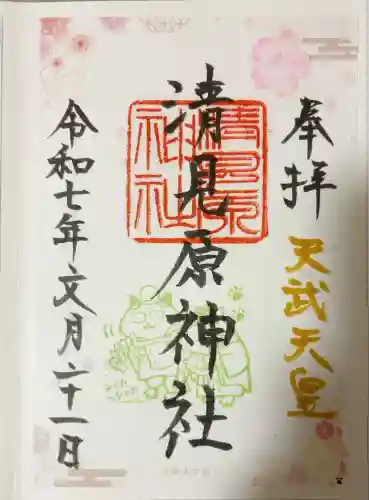 奉拝
天武天皇
清見原神社
清見原
神社
令和七年文月二十一日